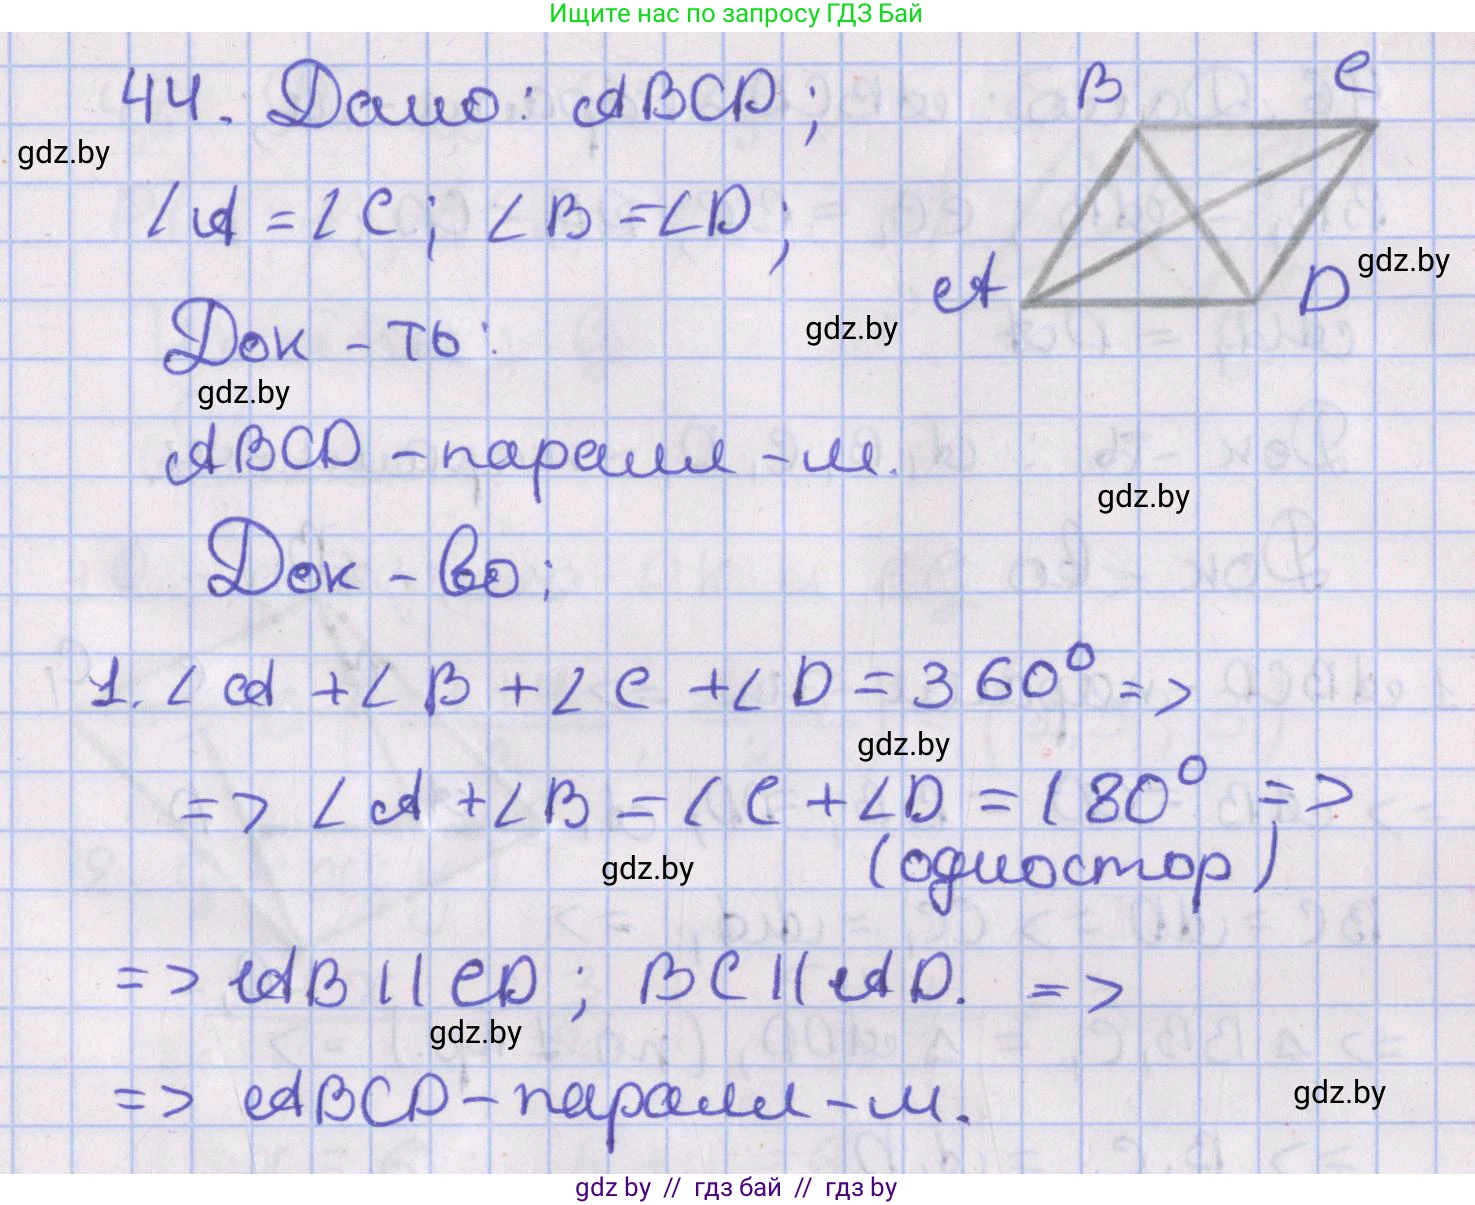 Ищите нас по запросу ГДЗ Бай
44. Дано: ABCD;
B C
gdz.by
∠A = ∠C; ∠B = ∠D;
gdz.by
A D
gdz.by
Док - ть:
gdz.by
ABCD - паралл - м.
gdz.by
Док - во:
1. ∠A + ∠B + ∠C + ∠D = 360° =>
gdz.by
=> ∠A + ∠B = ∠C + ∠D = 180° =>
(одностор)
gdz.by
=> AB || CD; BC || AD. =>
gdz.by
=> ABCD - паралл - м.
gdz.by
gdz by // гдз бай // гдз by